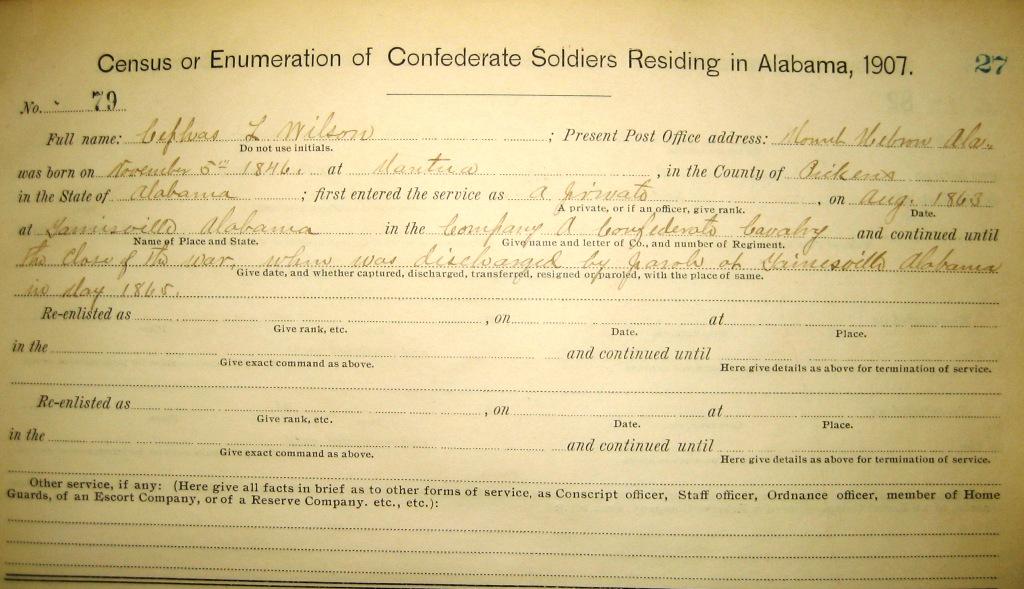 Census or Enumeration of Confederate Soldiers Residing in Alabama, 1907. 27
No. 79
Full name: Cephas L Wilson ; Present Post Office address: Mount Hebron Ala.
Do not use initials.
was born on November 5th 1846. at Mantua , in the County of Pickens
in the State of Alabama ; first entered the service as A private , on Aug. 1863
A private, or if an officer, give rank. Date.
at Gainesville Alabama in the Company A Confederate Cavalry and continued until
Name of Place and State. Give name and letter of Co., and number of Regiment.
the close of the war, when was discharged by parole at Gainesville Alabama
Give date, and whether captured, discharged, transferred, resigned or paroled, with the place of same.
in May 1865.
Re-enlisted as , on at
Give rank, etc. Date. Place.
in the and continued until
Give exact command as above. Here give details as above for termination of service.
Re-enlisted as , on at
Give rank, etc. Date. Place.
in the and continued until
Give exact command as above. Here give details as above for termination of service.
Other service, if any: (Here give all facts in brief as to other forms of service, as Conscript officer, Staff officer, Ordnance officer, member of Home
Guards, of an Escort Company, or of a Reserve Company. etc., etc.):